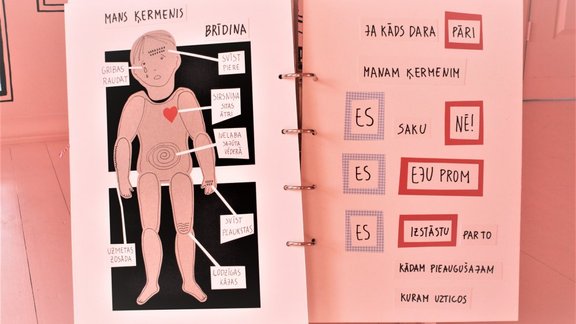 MANS ĶERMENIS
BRĪDINA
SVĪST
PIERE
GRIBAS
RAUDĀT
SIRSNIŅA
SITAS
ĀTRI
NELABA
SAJŪTA
VĒDERĀ
SVĪST
PLAUKSTAS
UZMETAS
ZOSĀDA
ĻODZĪGAS
KĀJAS
JA KĀDS DARA PĀRI
MANAM ĶERMENIM
ES SAKU NĒ!
ES EJU PROM
ES IZSTĀSTU PAR TO
KĀDAM PIEAUGUŠAJAM
KURAM UZTICOS